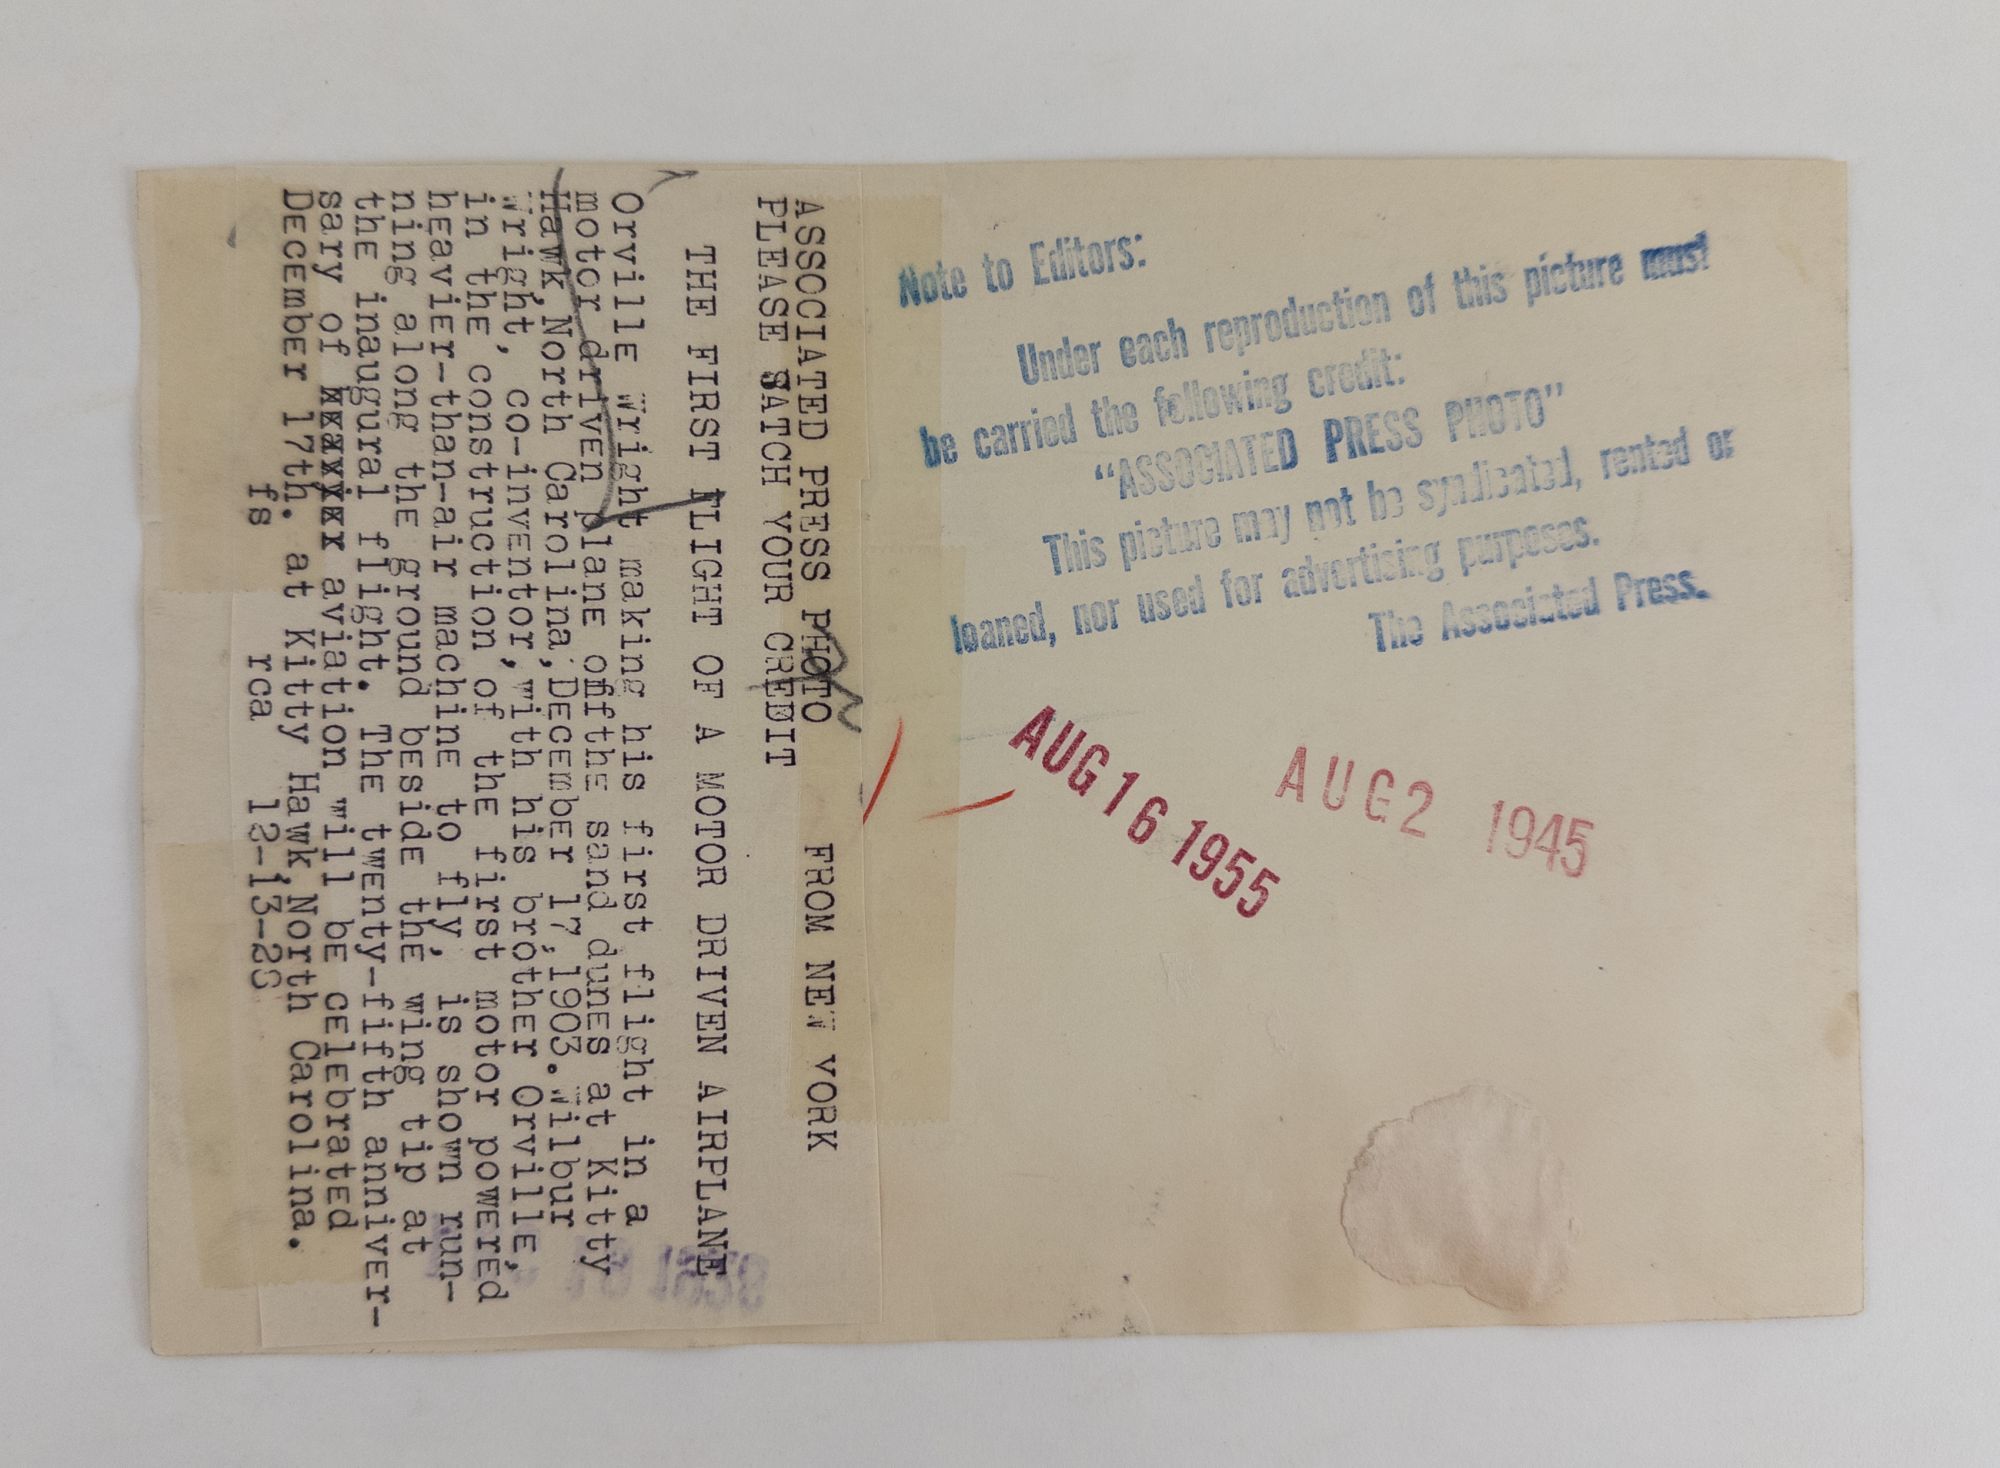 ASSOCIATED PRESS PHOTO FROM NEW YORK
PLEASE WATCH YOUR CREDIT
THE FIRST FLIGHT OF A MOTOR DRIVEN AIRPLANE
Orville Wright making his first flight in a
motor driven plane offthe sand dunes at Kitty
Hawk,North Carolina,December 17,1903.Wilbur
Wright, co-inventor,with his brother Orville,
in the construction of the first motor powered
heavier-than-air machine to fly, is shown run-
ning along the ground beside the wing tip at
the inaugural flight. The twenty-fifth anniver-
sary of aviation will be celebrated
December 17th. at Kitty Hawk,North Carolina.
fs rca 12-13-28
Note to Editors:
Under each reproduction of this picture must
be carried the following credit:
"ASSOCIATED PRESS PHOTO"
This picture may not be syndicated, rented or
loaned, nor used for advertising purposes.
The Associated Press.
AUG 16 1955
AUG2 1945